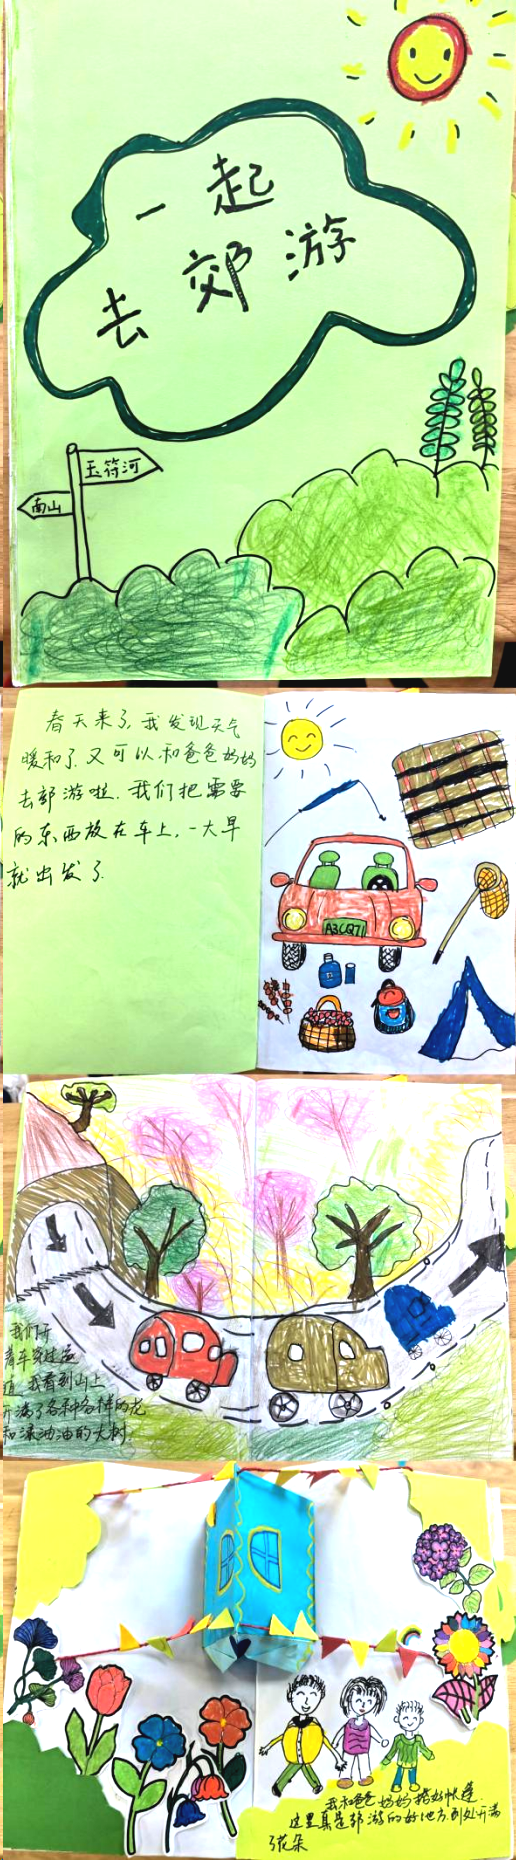 一起
去郊游
玉符河
南山
春天来了,我发现天气
暖和了.又可以和爸爸妈妈
去郊游啦.我们把需要
的东西放在车上,一大早
就出发了.
A3CQ71
我们开
着车穿过遂
道,我看到山上
开满了各种各样的花
和绿油油的大树.
我和爸爸妈妈搭好帐篷.
这里真是郊游的好地方到处开满
了花朵